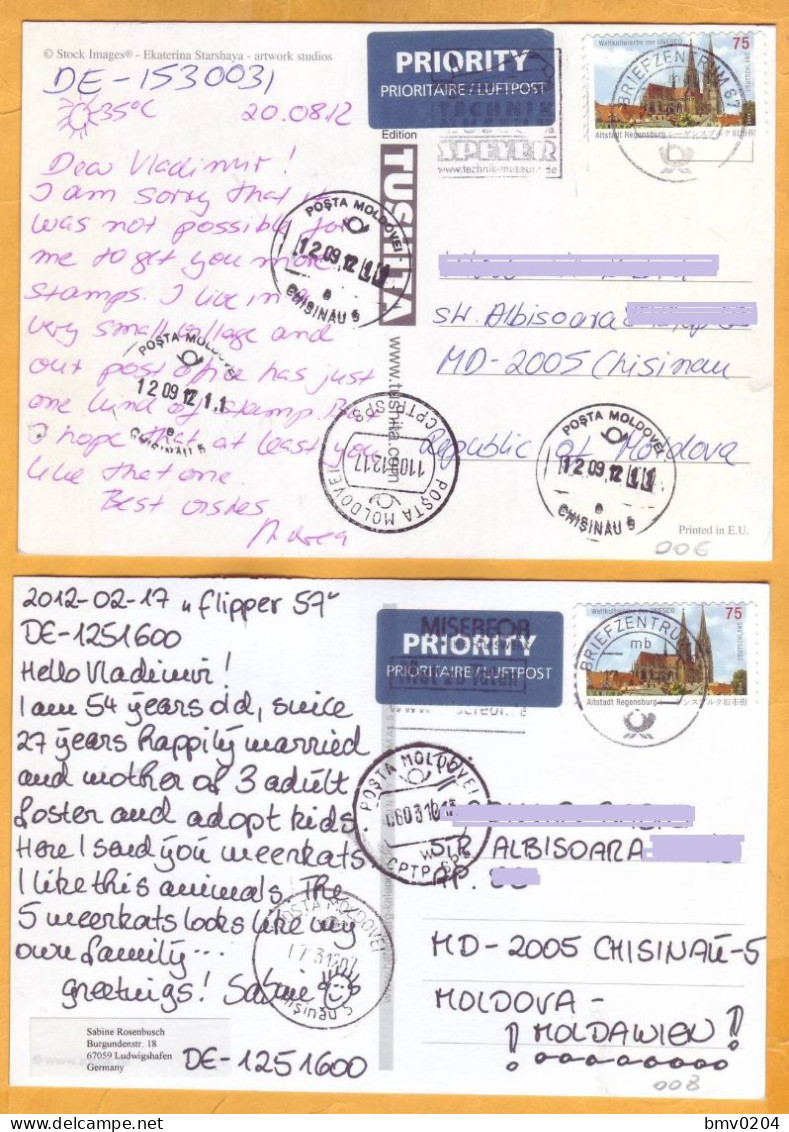 © Stock Images® - Ekaterina Starshaya - artwork studios
DE-1530031
35°C 20.08.12
Dear Vladimir!
I am sorry that it
was not possible for
me to get you more
stamps. I live in a
very small village and
out post office has just
one kind of stamp. But
I hope that at least you
like that one.
Best wishes
Edition
TUSHITA
www.tushita.com
PRIORITY
PRIORITAIRE/LUFTPOST
TECHNIK
MUSEUM
SPEYER
www.technik-museum.de
Weltkulturerbe der UNESCO
75
Altstadt Regensburg
BRIEFZENTRUM 67
Albisoara
MD-2005 Chisinau
Republic of Moldova
POŞTA MOLDOVEI
12.09.12 11
e
CHISINAU 5
POŞTA MOLDOVEI
12 09 12 11
e
CHISINAU 5
POŞTA MOLDOVEI
CPTP SPS
POŞTA MOLDOVEI
12.09.12 11
e
CHISINAU 5
Printed in E.U.
006
2012-02-17 "flipper 57"
DE-1251600
Hello Vladimir!
I am 54 years old, since
27 years happily married
and mother of 3 adult
foster and adopt kids.
Here I send you meerkats.
I like this animals. The
5 meerkats looks like my
own family...
greetings! Sabine
Sabine Rosenbusch
Burgundenstr. 18
67059 Ludwigshafen
Germany
DE-1251600
MISEREOR
PRIORITY
PRIORITAIRE/LUFTPOST
Weltkulturerbe der UNESCO
75
Altstadt Regensburg
BRIEFZENTRUM
mb
POŞTA MOLDOVEI
CPTP SPS
POŞTA MOLDOVEI
Chişinău 5
STR ALBISOARA
AP.
MD-2005 CHISINAU-5
MOLDOVA-
! MOLDAWIEN!
008
bmv0204